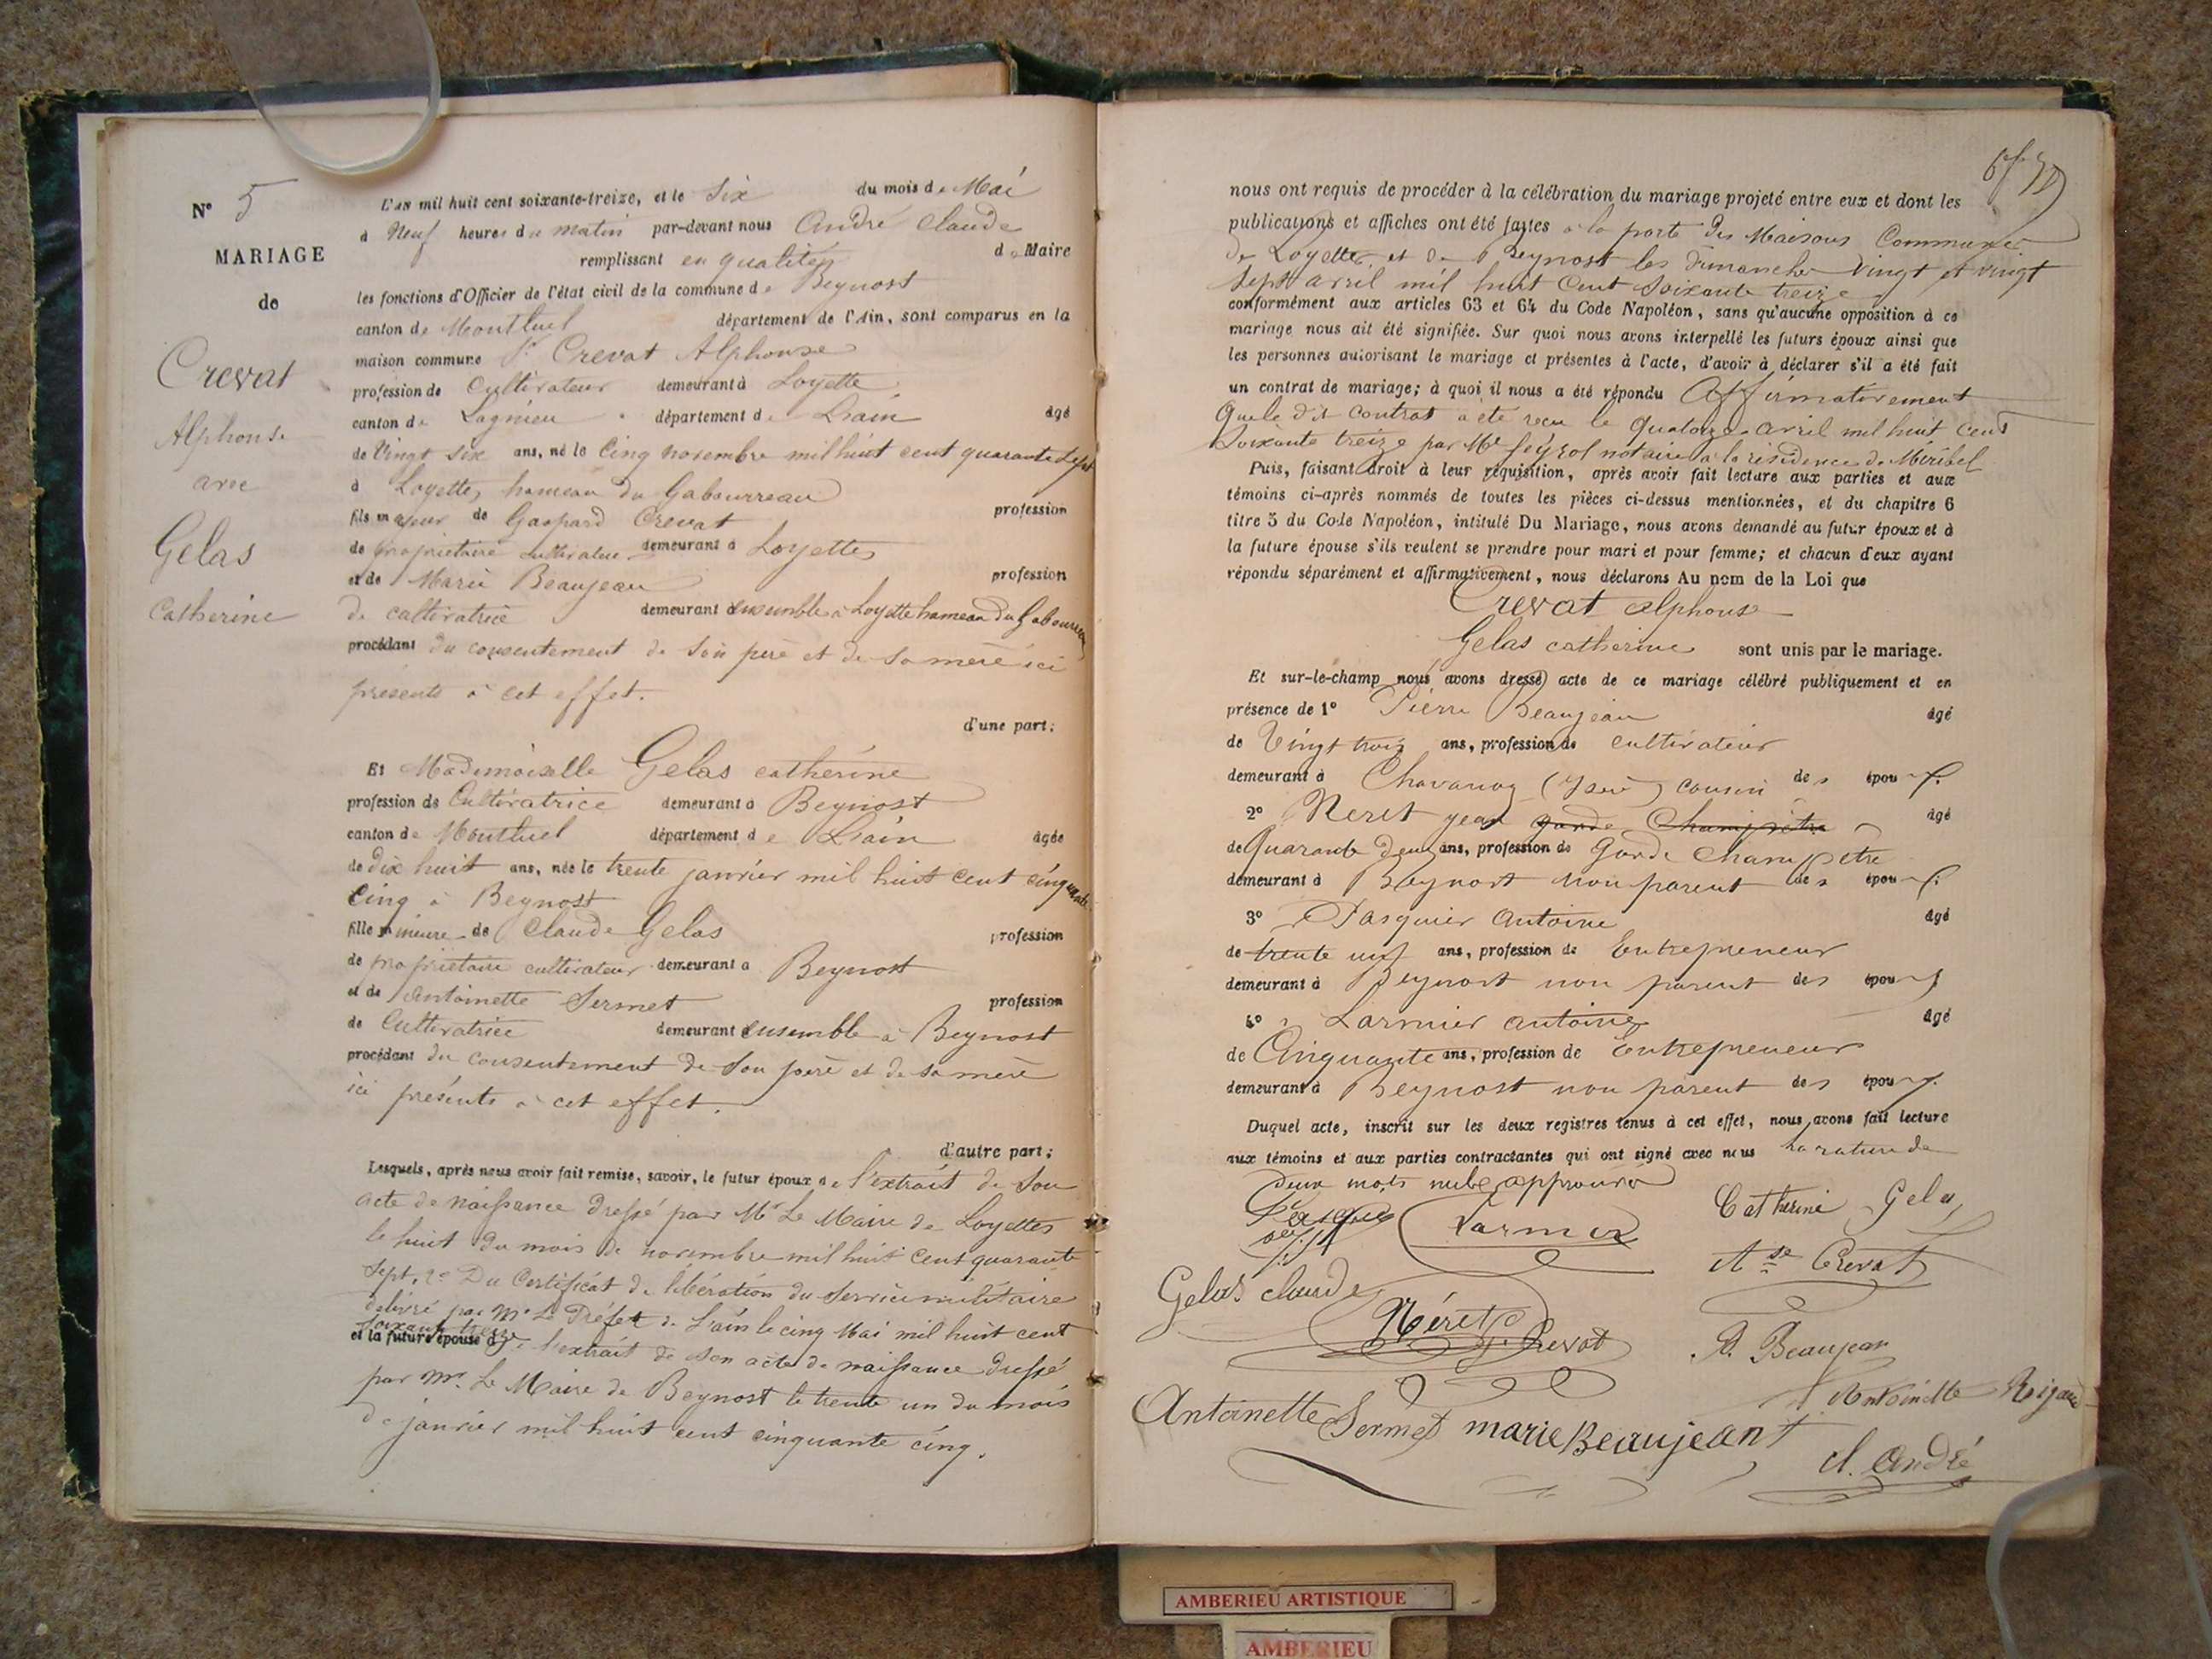 N° 5
MARIAGE
de
Crevat
Alphonse
avec
Gelas
Catherine
L'an mil huit cent soixante-treize, et le Six du mois de Mai
à Neuf heures du matin par-devant nous André Claude
remplissant en qualité de Maire
les fonctions d'Officier de l'état civil de la commune de Beynost
canton de Montluel département de l'Ain, sont comparus en la
maison commune Sr Crevat Alphonse
profession de Cultivateur demeurant à Loyette
canton de Lagnieu département de L'ain âgé
de Vingt Six ans, né le Cinq novembre mil huit cent quarante Sept
à Loyettes hameau du Gabourreau
fils majeur de Gaspard Crevat profession
de propriétaire cultivateur demeurant à Loyettes
et de Marie Beaujean profession
de cultivatrice demeurant ensemble à Loyette hameau du Gabourreau
procédant du consentement de Son père et de Sa mère ici
présents à cet effet.
d'une part;
Et Mademoiselle Gelas catherine
profession de Cultivatrice demeurant à Beynost
canton de Montluel département de L'ain âgée
de Dix huit ans, née le trente janvier mil huit cent cinquante
Cinq à Beynost
fille mineure de Claude Gelas profession
de propriétaire cultivateur demeurant à Beynost
et de Antoinette Sermet profession
de Cultivatrice demeurant ensemble à Beynost
procédant du consentement de Son père et de Sa mère
ici présents à cet effet.
d'autre part;
Lesquels, après nous avoir fait remise, savoir, le futur époux de l'extrait de Son
acte de naissance Dressé par Mr Le Maire de Loyettes
le huit du mois de novembre mil huit cent quarante
Sept, 2° Du Certificat de libération du Service militaire
délivré par Mr Le Préfet de L'ain le cinq Mai mil huit cent
soixante treize
et la future épouse de l'extrait de Son acte de naissance Dressé
par Mr Le Maire de Beynost le trente un du mois
de janvier mil huit cent cinquante cinq.
nous ont requis de procéder à la célébration du mariage projeté entre eux et dont les
publications et affiches ont été faites à la porte des Maisons Communes
De Loyettes et de Beynost les Dimanches Vingt et vingt
Sept avril mil huit Cent Soixante treize
conformément aux articles 63 et 64 du Code Napoléon, sans qu'aucune opposition à ce
mariage nous ait été signifiée. Sur quoi nous avons interpellé les futurs époux ainsi que
les personnes autorisant le mariage et présentes à l'acte, d'avoir à déclarer s'il a été fait
un contrat de mariage; à quoi il nous a été répondu Affirmativement
que le dit Contrat a été reçu le Quatorze avril mil huit Cent
Soixante treize par Me notaire à la résidence de Miribel
Puis, faisant droit à leur réquisition, après avoir fait lecture aux parties et aux
témoins ci-après nommés de toutes les pièces ci-dessus mentionnées, et du chapitre 6
titre 5 du Code Napoléon, intitulé Du Mariage, nous avons demandé au futur époux et à
la future épouse s'ils veulent se prendre pour mari et pour femme; et chacun d'eux ayant
répondu séparément et affirmativement, nous déclarons Au nom de la Loi que
Crevat alphonse
Gelas catherine sont unis par le mariage.
Et sur-le-champ nous avons dressé acte de ce mariage célébré publiquement et en
présence de 1° Pierre Beaujean âgé
de Vingt trois ans, profession de cultivateur
demeurant à Chavanoz (Isère) cousin des époux.
2° Neret jean garde Champêtre âgé
de Quarante Deux ans, profession de Garde Champêtre
demeurant à Beynost non parent des époux.
3° Pasquier Antoine âgé
de trente neuf ans, profession de Entrepreneur
demeurant à Beynost non parent des époux
4° Larmier antoine âgé
de Cinquante ans, profession de Entrepreneur
demeurant à Beynost non parent des époux.
Duquel acte, inscrit sur les deux registres tenus à cet effet, nous avons fait lecture
aux témoins et aux parties contractantes qui ont signé avec nous La rature de
Deux mots nuls approuvé
Larmier
Catherine Gelas
Ase Crevat
Gelas claude
Néret
Crevat
P. Beaujean
Antoinette Rigaud
Antoinette Sermet
marie Beaujeant
Cl. André
AMBERIEU ARTISTIQUE
AMBERIEU